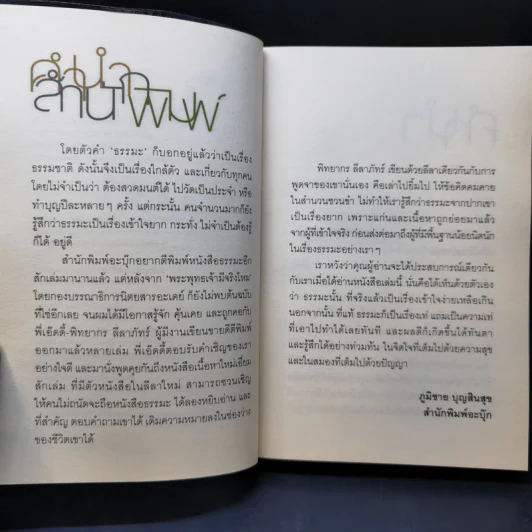 คำนำ
สำนักพิมพ์
โดยตัวคำ 'ธรรมะ' ก็บอกอยู่แล้วว่าเป็นเรื่อง
ธรรมชาติ ดังนั้นจึงเป็นเรื่องใกล้ตัว และเกี่ยวกับทุกคน
โดยไม่จำเป็นว่า ต้องสวดมนต์ได้ ไปวัดเป็นประจำ หรือ
ทำบุญปีละหลาย ๆ ครั้ง แต่กระนั้น คนจำนวนมากก็ยัง
รู้สึกว่าธรรมะเป็นเรื่องเข้าใจยาก กระทั่ง ไม่จำเป็นต้องรู้
ก็ได้ อยู่ดี
สำนักพิมพ์อะบุ๊กอยากตีพิมพ์หนังสือธรรมะอีก
สักเล่มมานานแล้ว แต่หลังจาก 'พระพุทธเจ้ามีจริงไหม'
โดยกองบรรณาธิการนิตยสารอะเดย์ ก็ยังไม่พบต้นฉบับ
ที่ใช่อีกเลย จนผมได้มีโอกาสรู้จัก คุ้นเคย และถูกคอกับ
พี่เอ็ดดี้-พิทยากร ลีลาภัทร์ ผู้มีงานเขียนขายดีตีพิมพ์
ออกมาแล้วหลายเล่ม พี่เอ็ดดี้ตอบรับคำเชิญของเรา
อย่างใจดี และมานั่งพูดคุยกันถึงหนังสือเนื้อหาใหม่เอี่ยม
สักเล่ม ที่มีตัวหนังสือในลีลาใหม่ สามารถชวนเชิญ
ให้คนไม่ถนัดจะถือหนังสือธรรมะ ได้ลองหยิบอ่าน และ
ที่สำคัญ ตอบคำถามเขาได้ เติมความหมายลงในช่องว่าง
ของชีวิตเขาได้
พิทยากร ลีลาภัทร์ เขียนด้วยลีลาเดียวกันกับการ
พูดจาของเขานั่นเอง คือเล่าไปยิ้มไป ให้ข้อคิดคมคาย
ในสำนวนชวนขำ ไม่ทำให้เรารู้สึกว่าธรรมะจากปากเขา
เป็นเรื่องยาก เพราะแก่นและเนื้อหาถูกย่อยมาแล้ว
จากผู้ที่เข้าใจจริง ก่อนส่งต่อมาถึงผู้ที่มีพื้นฐานน้อยนิดนัก
ในเรื่องธรรมะอย่างเรา ๆ
เราหวังว่าคุณผู้อ่านจะได้ประสบการณ์เดียวกัน
กับเราเมื่อได้อ่านหนังสือเล่มนี้ นั่นคือได้เห็นด้วยตัวเอง
ว่า ธรรมะนั้น ที่จริงแล้วเป็นเรื่องเข้าใจง่ายเหลือเกิน
นอกจากนั้น ที่แท้ ธรรมะก็เป็นเรื่องเท่ แถมเป็นความเท่
ที่เอาไปทำได้เลยทันที และผลดีก็เกิดขึ้นได้ทันตา
และรู้สึกได้อย่างท่วมท้น ในจิตใจที่เต็มไปด้วยความสุข
และในสมองที่เต็มไปด้วยปัญญา
ภูมิชาย บุญสินสุข
สำนักพิมพ์อะบุ๊ก